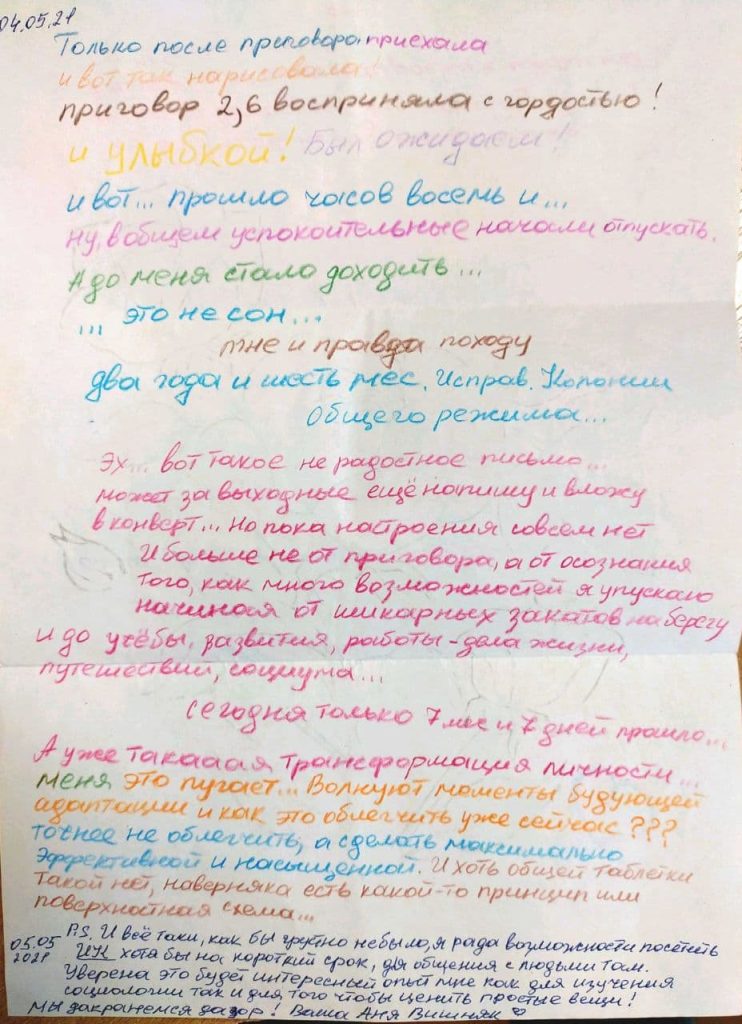 04.05.21
Только после приговора приехала
и вот так нарисовала!
приговор 2,6 восприняла с гордостью!
и улыбкой! Был ожидаем!
и вот... прошло часов восемь и...
ну, в общем успокоительные начали отпускать.
А до меня стало доходить...
... это не сон...
мне и правда походу
два года и шесть мес. Исправ. Колонии
Общего режима...
Эх... вот такое не радостное письмо...
может за выходные ещё напишу и вложу
в конверт... Но пока настроения совсем нет
И больше не от приговора, а от осознания
Того, как много возможностей я упускаю
начиная от шикарных закатов на берегу
и до учёбы, развития, работы - дела жизни,
путешествий, социума...
Сегодня только 7 мес и 7 дней прошло...
А уже Такаааая Трансформация личности...
меня это пугает... Волнуют моменты будующей
адаптации и как это облегчить уже сейчас???
точнее не облегчить, а сделать максимально
эффективной и насыщенной. И хоть общей таблетки
Такой нет, наверняка есть какой-то принцип или
поверхностная схема...
05.05 P.S. И всё таки, как бы грустно не было, я рада возможности посетить
2021 ИК хотя бы на короткий срок, для общения с людьми там.
Уверена это будет интересный опыт мне как для изучения
социологии так и для того чтобы ценить простые вещи!
Мы дакранемся да зор! Ваша Аня Вишняк ♡